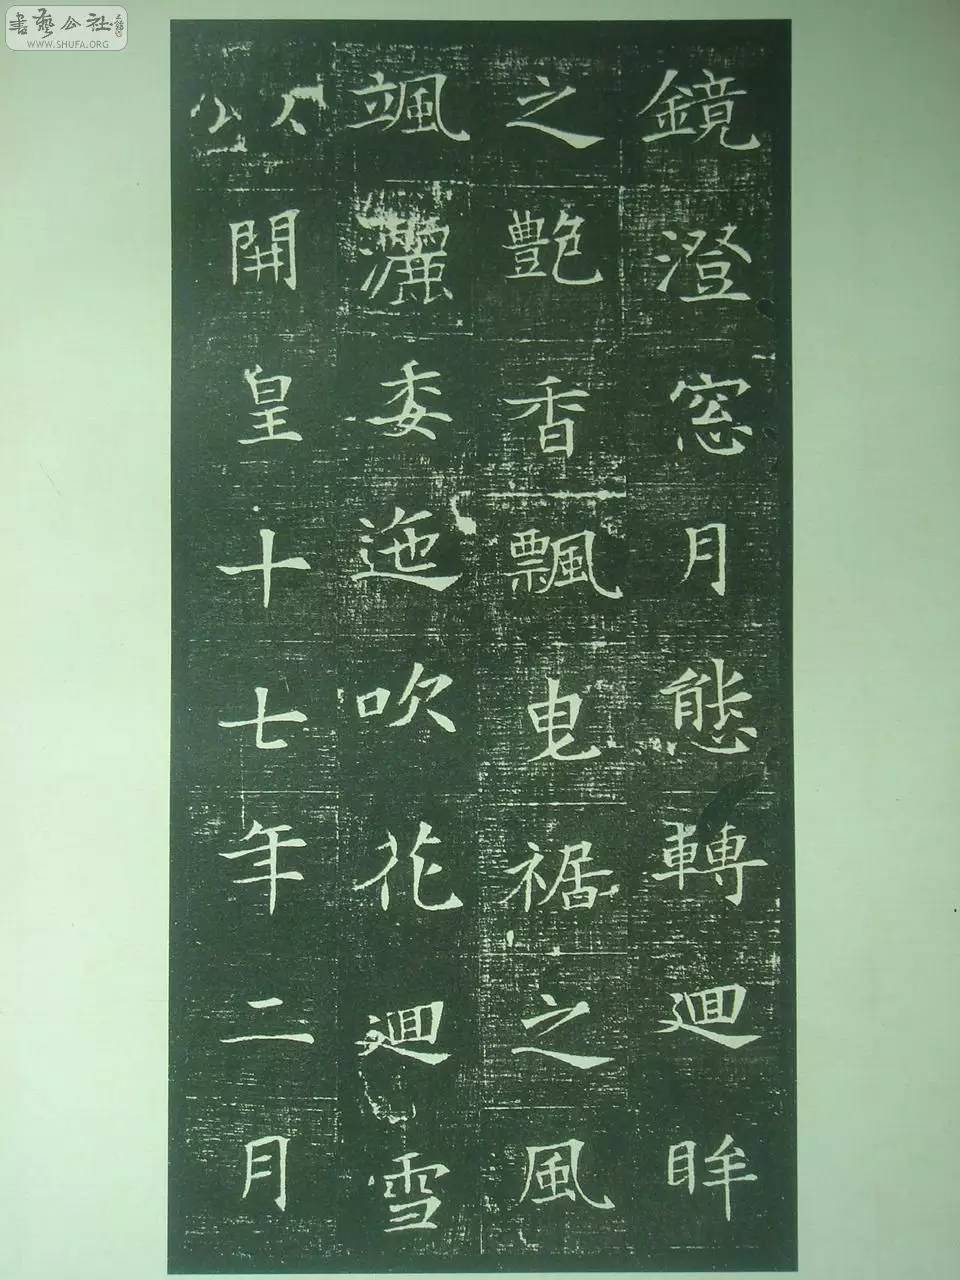 鏡澄窓月態轉迴眸
之艶香飄曳裾之風
颯灑委迤吹花迴雪
開皇十七年二月
書藝公社
WWW.SHUFA.ORG